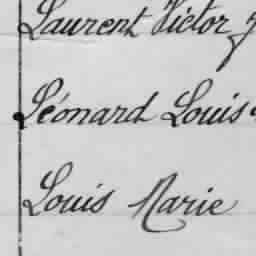 Laurent Victor J
Léonard Louis
Louis Marie